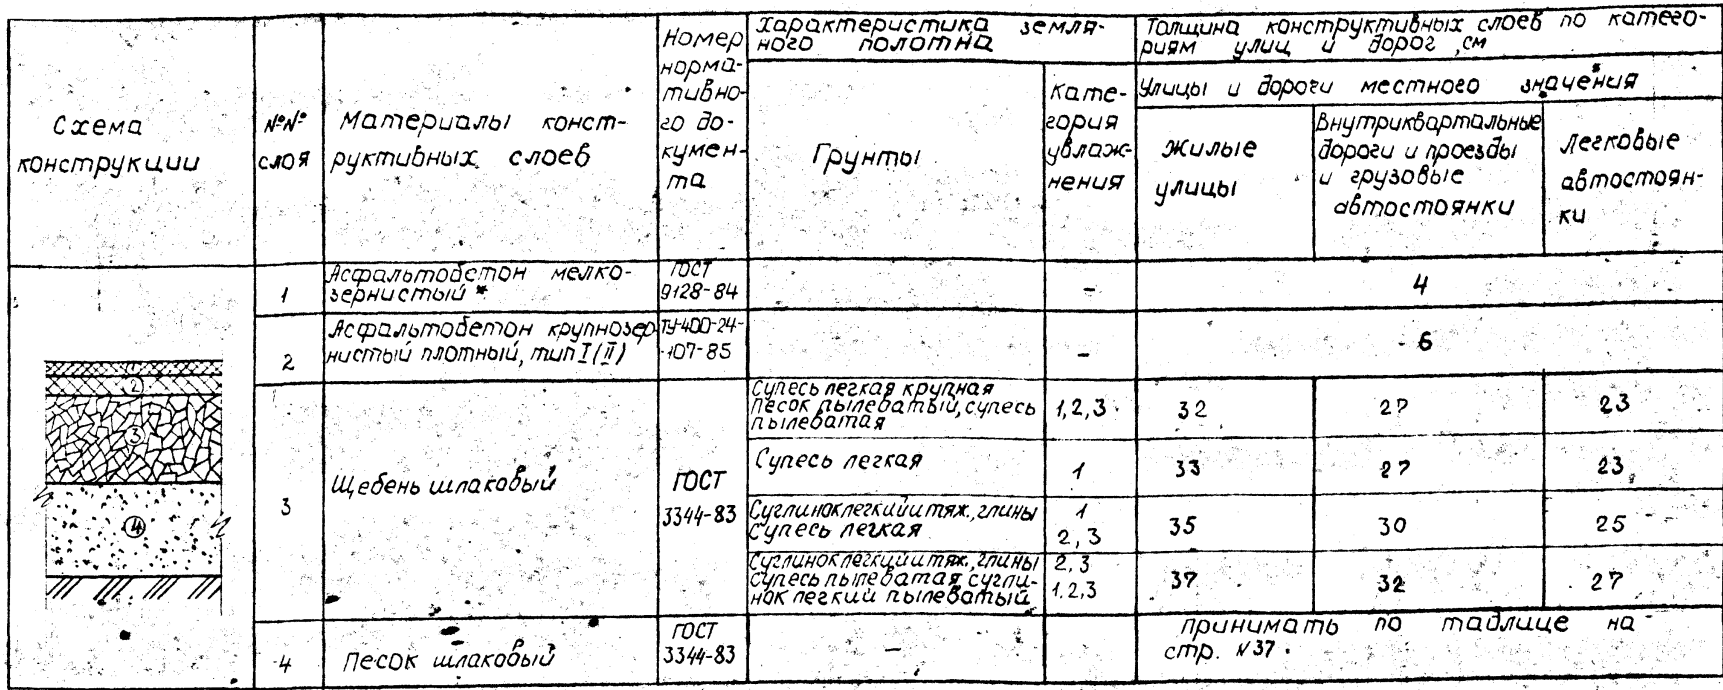 Схема
конструкции
№№
слоя
Материалы конст-
руктивных слоев
Номер
норма-
тивно-
го до-
кумен-
та
Характеристика земля-
ного полотна
Грунты
Кате-
гория
увлаж-
нения
Толщина конструктивных слоев по катего-
риям улиц и дорог, см
Улицы и дороги местного значения
Жилые
улицы
Внутриквартальные
дороги и проезды
и грузовые
автостоянки
Легковые
автостоян-
ки
1
Асфальтобетон мелко-
зернистый *
ГОСТ
9128-84
-
4
2
Асфальтобетон крупнозер-
нистый плотный, тип I (II)
ТУ-400-24-
-107-85
-
6
3
Щебень шлаковый
ГОСТ
3344-83
Супесь легкая крупная
Песок пылеватый, супесь
пылеватая
1,2,3
32
27
23
Супесь легкая
1
33
27
23
Суглинок легкий и тяж., глины
Супесь легкая
1
2,3
35
30
25
Суглинок легкий и тяж., глины
Супесь пылеватая, сугли-
нок легкий пылеватый
2,3
1,2,3
37
32
27
4
Песок шлаковый
ГОСТ
3344-83
-
принимать по таблице на
стр. №37.
1
2
3
4